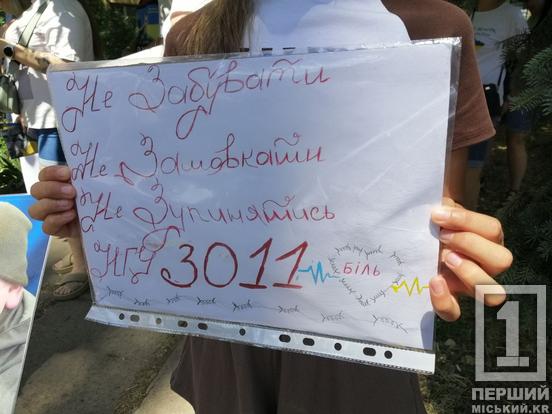 Не Забувати
Не Замовкати
Не Зупинятись
НГУ 3011 біль
1
ПЕРШИЙ
МІСЬКИЙ.KR